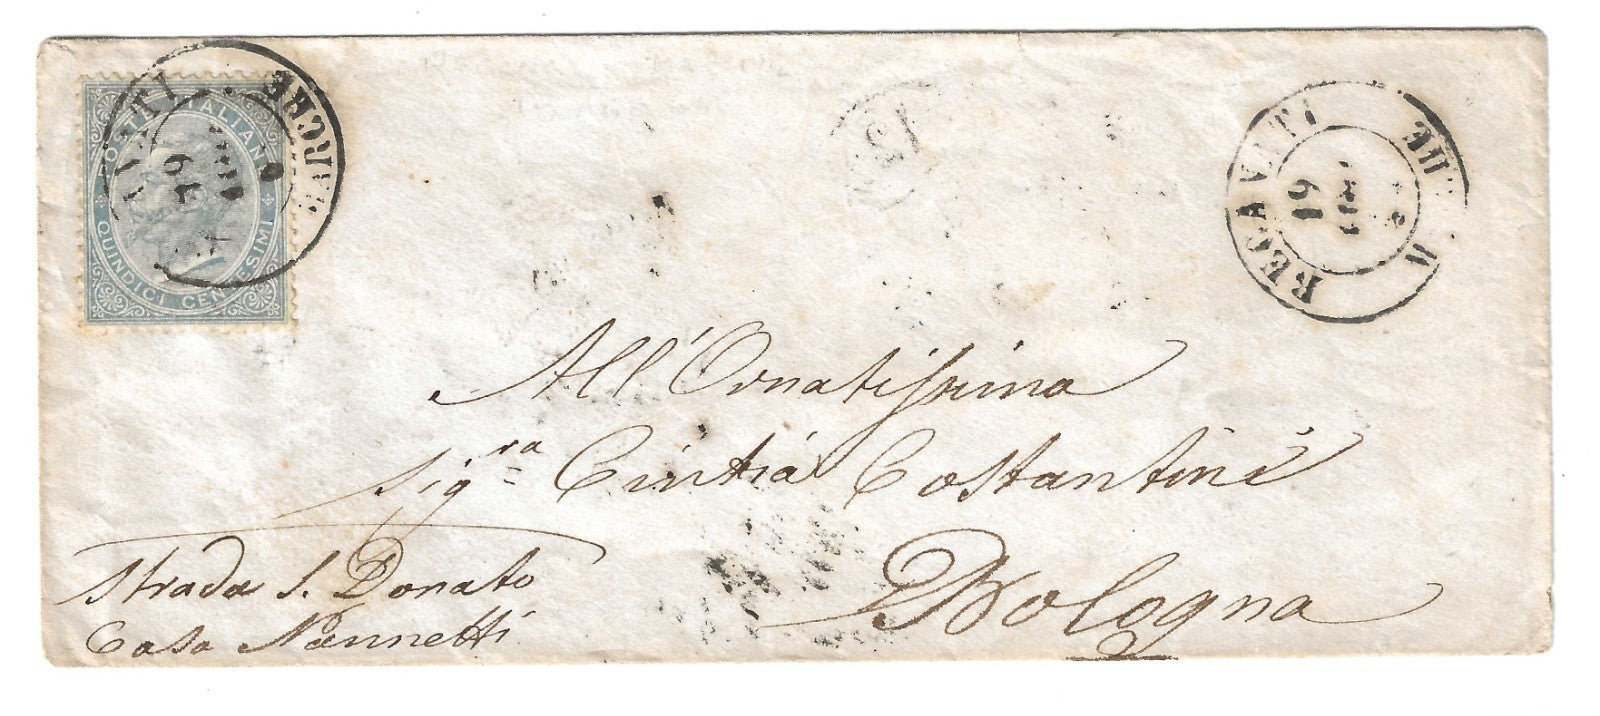 POSTE ITALIANE
QUINDICI CENTESIMI
MARCHE
64
RECANATI
64
12
All'Ornatissima
Sig.ra Cintia Costantini
Bologna
Strada S. Donato
Casa Nannetti